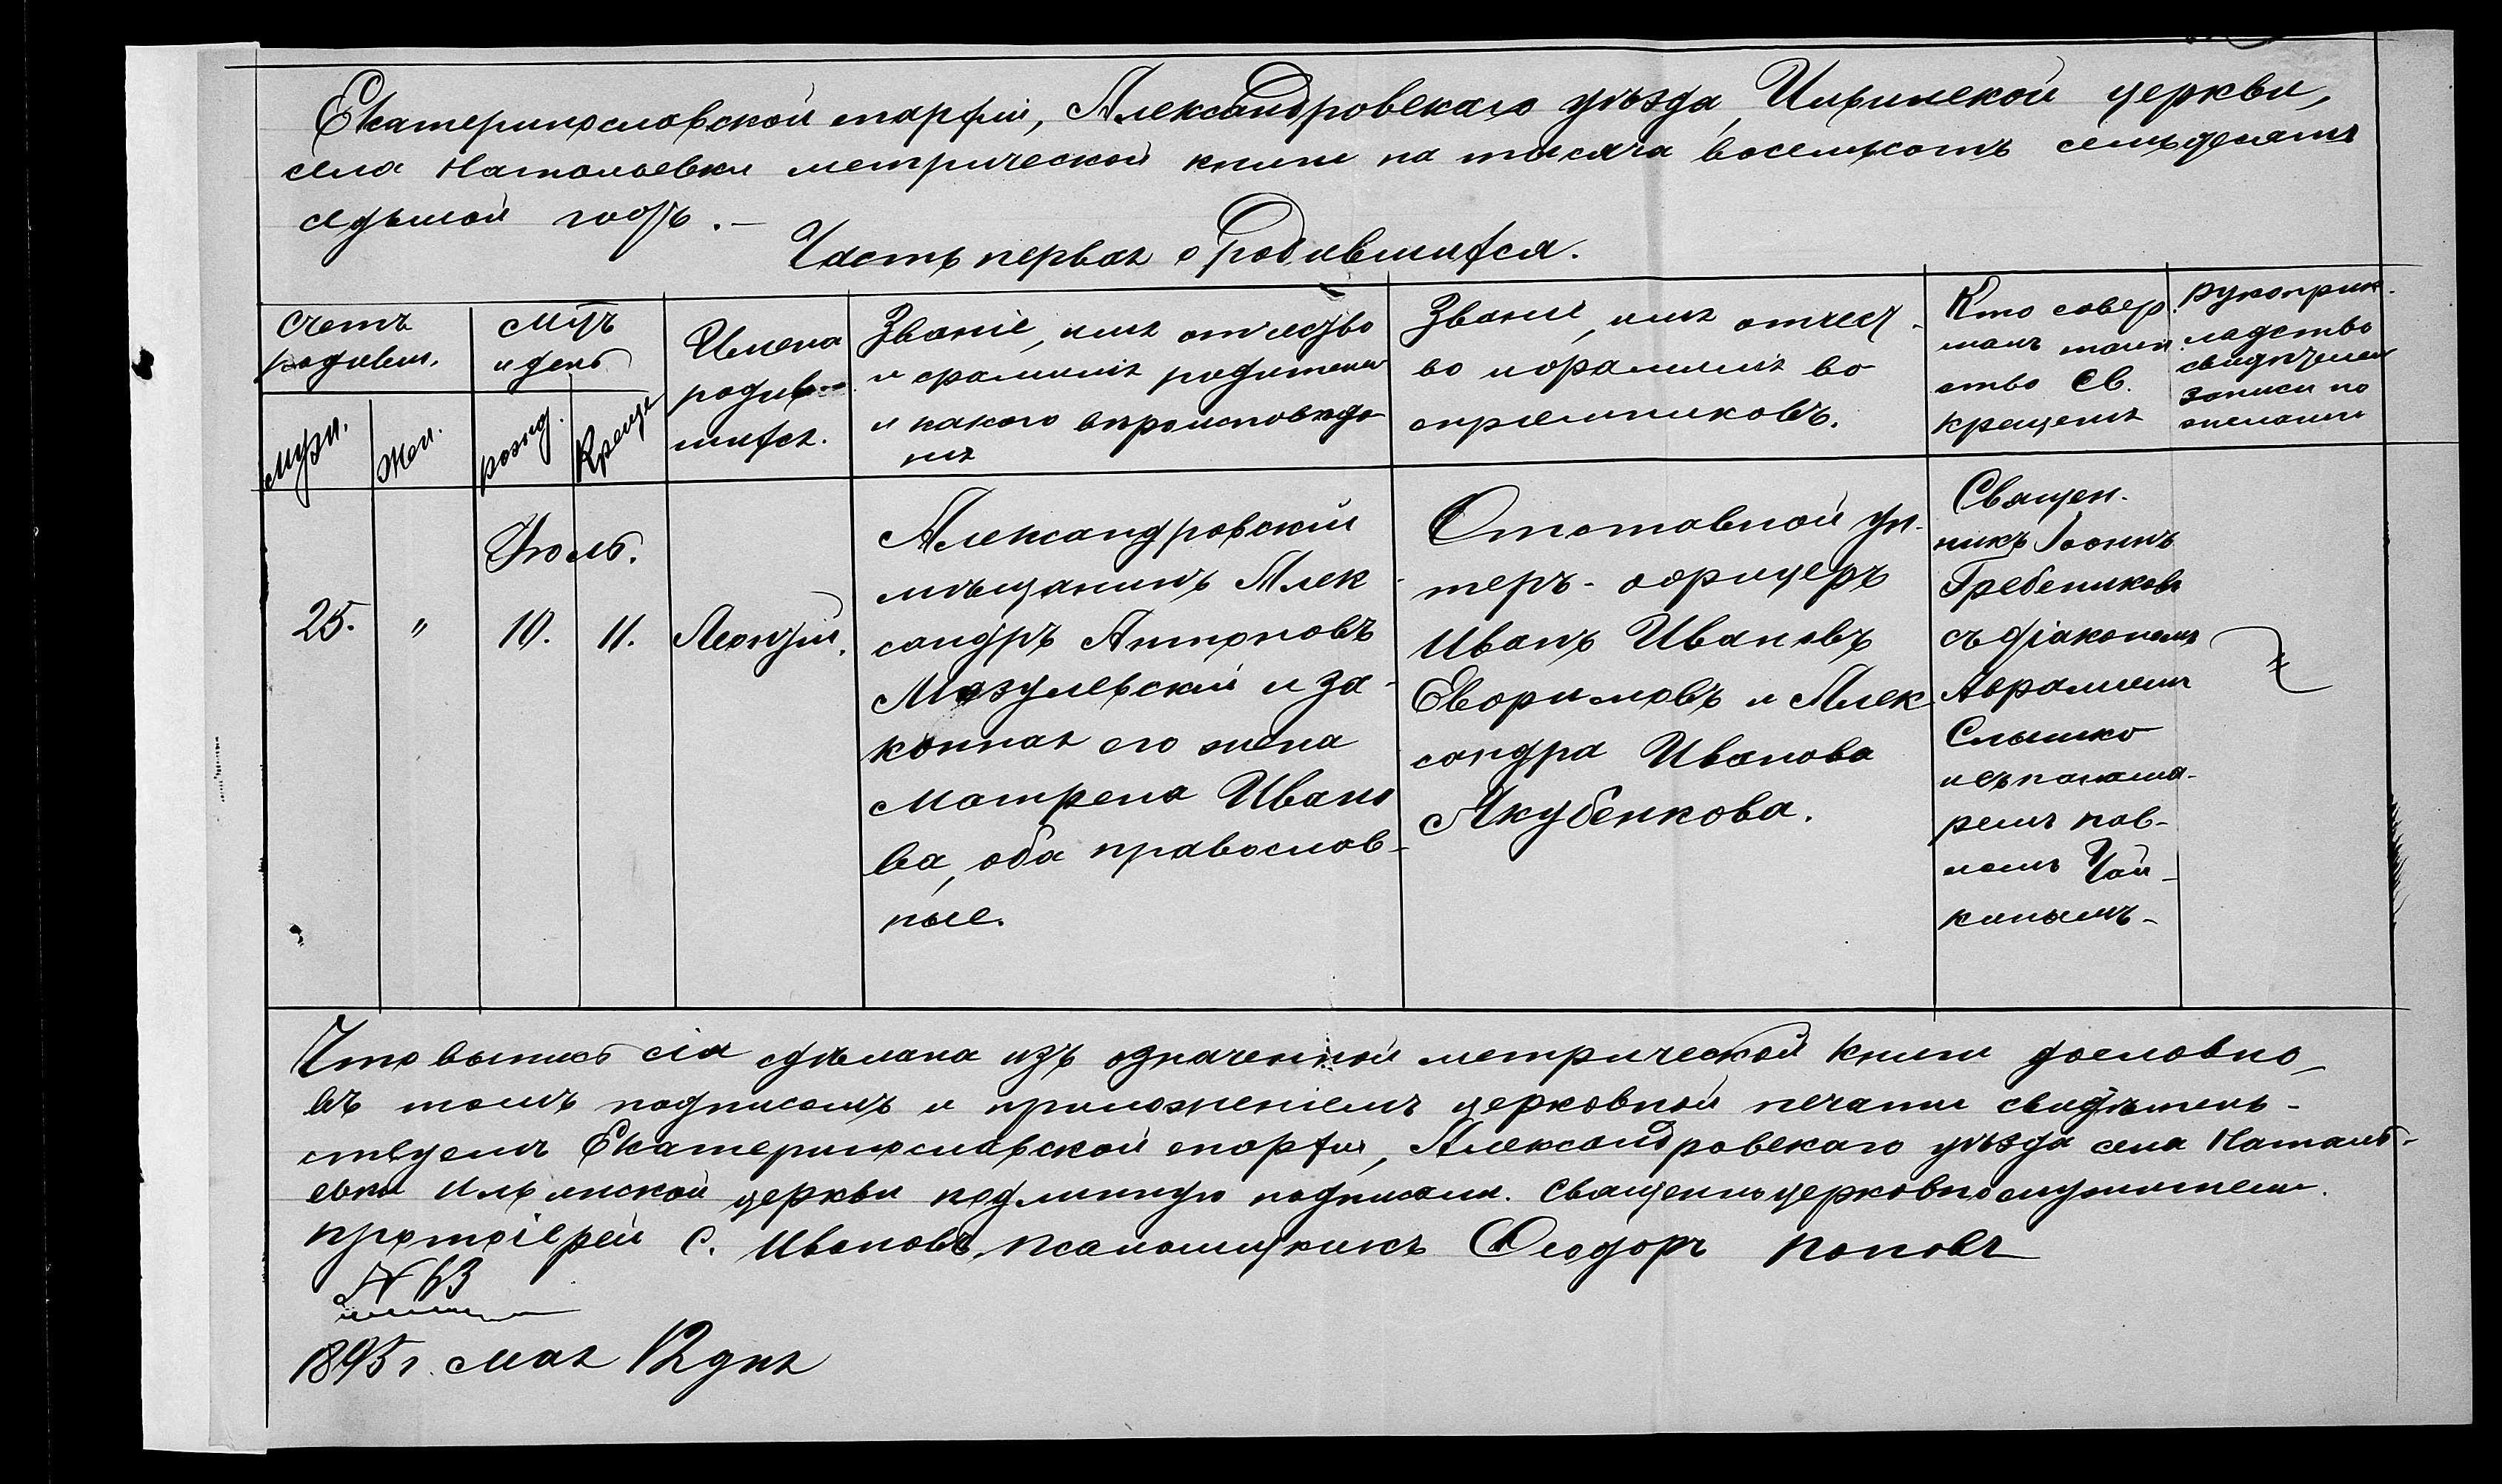 Екатеринославской епархіи, Александровскаго уѣзда, Ильинской церкви,
села Натальевки метрической книги на тысяча восемьсотъ семьдесятъ
седьмой годъ.-
Часть первая о родившихся.
Счетъ
родивш.
Муж.
Жен.
Мѣсяцъ
и день
рожд.
Креще
Имена
родив-
шихся.
Званіе, имя отчество
и фамилія родителей
и какого вѣроисповѣда
нія
Званіе, имя отчест-
во и фамилія во
спріемниковъ.
Кто совер
шалъ таин
ство Св.
Крещенія
Рукоприк-
ладство
свидѣтелей
записи по
желанію
25.
"
Іюль.
10.
11.
Леонтій.
Александровскій
мѣщанинъ Алек-
сандръ Антоновъ
Мазулевскій и за-
конная его жена
Матрена Ивано
ва, оба православ-
ные.
Отставной ун-
теръ-офицеръ
Иванъ Ивановъ
Евфимовъ и Алек
сандра Иванова
Якубенкова.
Священ-
никъ Іоаннъ
Гребениковъ
съ діакономъ
Авраміемъ
Слышко
и съ понома-
ремъ Пав-
ломъ Чай-
кинымъ-
Что выпись сія сдѣлана изъ означенной метрической книги дословно
въ томъ подписомъ и приложеніемъ церковной печати свидѣтель-
ствуемъ Екатеринославской епархіи, Александровскаго уѣзда села Наталь-
евки Ильинской церкви подлинную подписали. Священноцерковнослужители.
Протоіерей С. Ивановъ, Псаломщикъ Ѳеодоръ Поповъ
№ 63
1895 г. Мая 12 дня